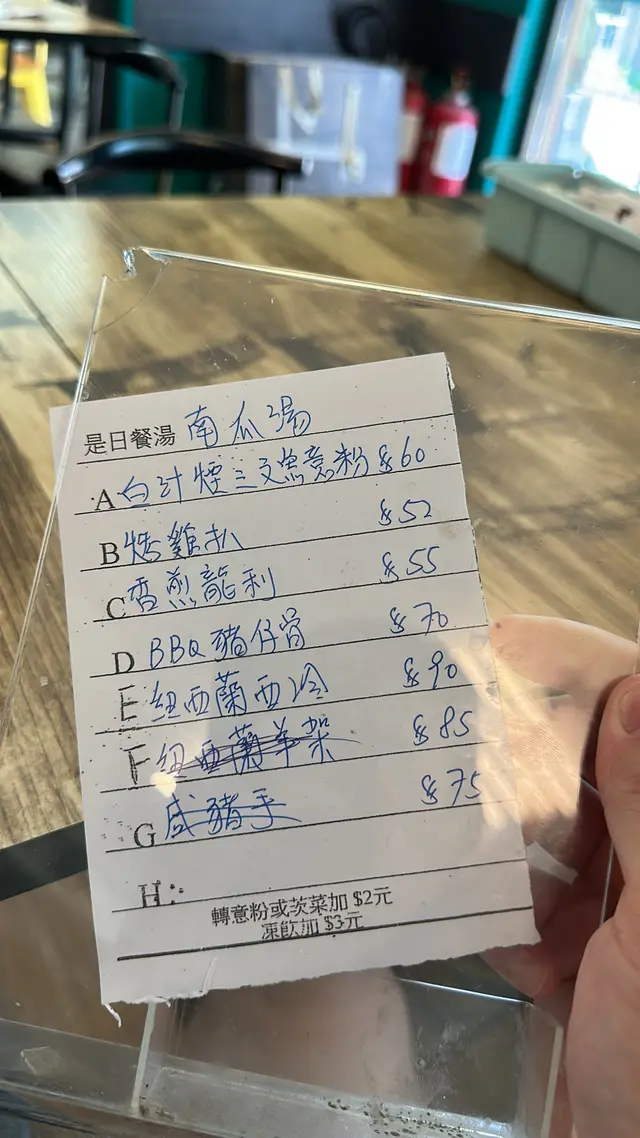 是日餐湯 南瓜湯
A 白汁煙三文魚意粉 $60
B 烤雞扒 $52
C 香煎龍利 $55
D BBQ 豬仔骨 $70
E 紐西蘭西冷 $90
F 紐西蘭羊架 $85
G 咸豬手 $75
H:
轉意粉或茨菜加 $2元
凍飲加 $3元